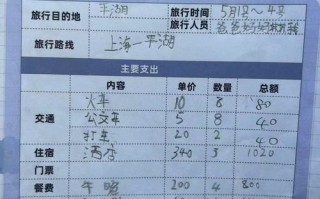 旅行目的地 平湖 旅行时间 5月1号～4号
旅行人员 爸爸妈妈
旅行路线 上海—平湖
主要支出
内容 单价 数量 总额
火车 10 8 80
交通 公交车 5 8 40
打车 20 2 40
住宿 酒店 340 3 1020
门票
餐费 午晚 200 4 800